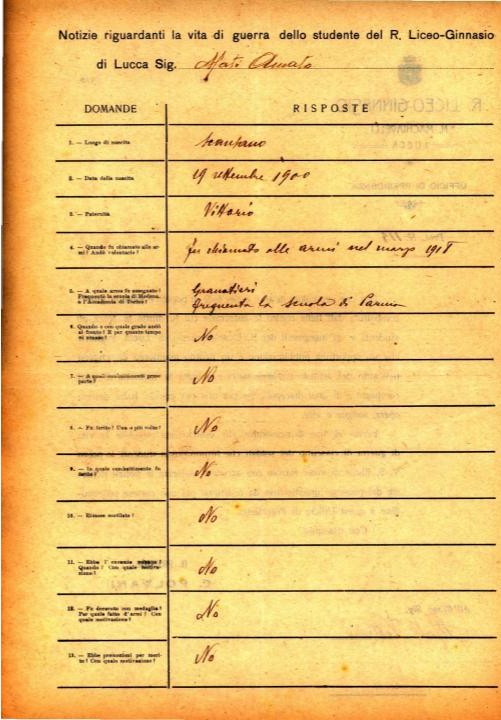 Notizie riguardanti la vita di guerra dello studente del R. Liceo-Ginnasio
di Lucca Sig. Amato
DOMANDE RISPOSTE
1. — Luogo di nascita Scansano
2. — Data della nascita 19 settembre 1900
3. — Paternità Vittorio
4. — Quando fu chiamato alle armi? Andò volontario? fu chiamato alle armi nel marzo 1918
5. — A quale arma fu assegnato? Granatieri
Frequentò la scuola di Modena, o l'Accademia di Torino? frequenta la scuola di Parma
6. Quando e con quale grado andò al fronte? E per quanto tempo vi rimase? No
7. — A quali combattimenti prese parte? No
8. — Fu ferito? Una o più volte? No
9. — In quale combattimento fu ferito? No
10. — Rimase mutilato? No
11. — Ebbe l'encomio solenne? Quando? Con quale motivazione? No
12. — Fu decorato con medaglia? Per quale fatto d'armi? Con quale motivazione? No
13. — Ebbe promozioni per merito? Con quale motivazione? No